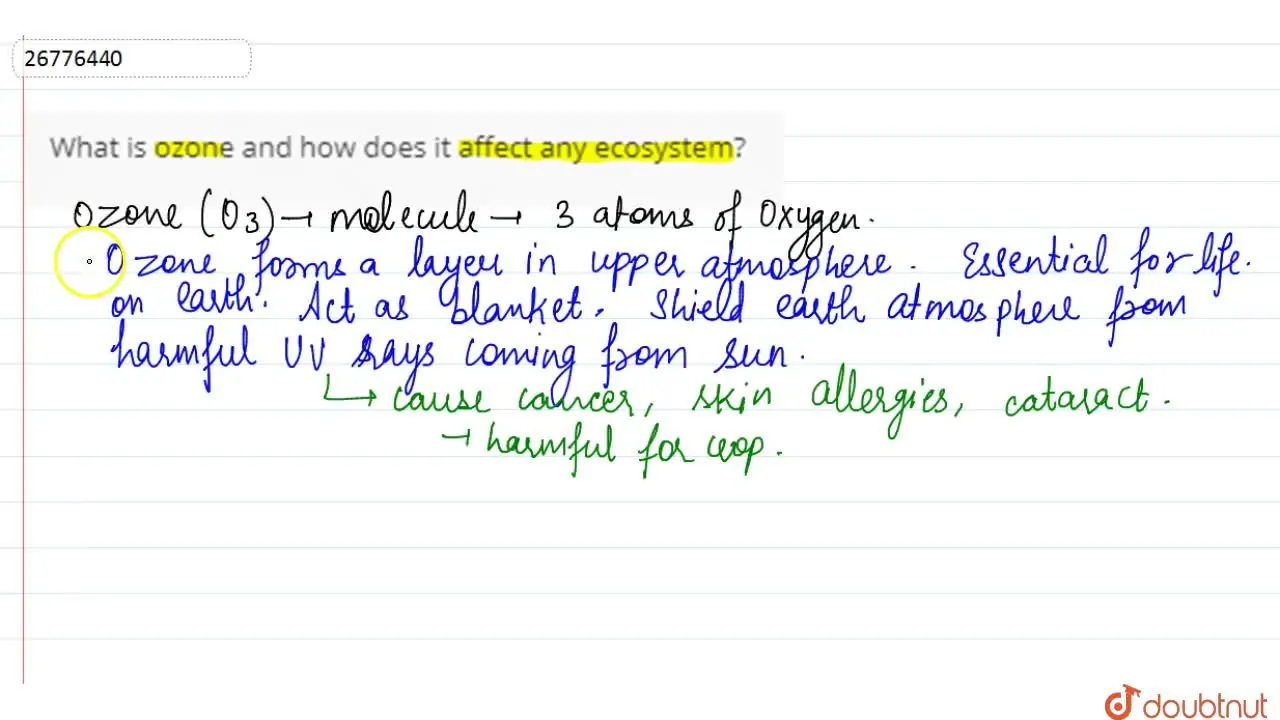 26776440
What is ozone and how does it affect any ecosystem?
Ozone (O3) → molecule → 3 atoms of Oxygen.
Ozone forms a layer in upper atmosphere. Essential for life.
on earth. Act as blanket. Shield earth atmosphere from
harmful UV rays coming from sun.
↳ cause cancer, skin allergies, cataract.
→ harmful for crop.
doubtnut